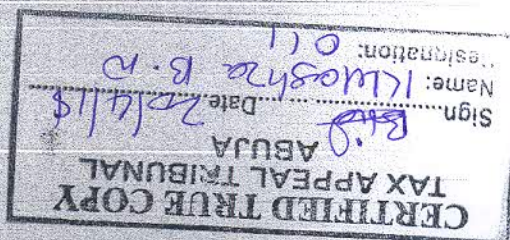 CERTIFIED TRUE COPY
TAX APPEAL TRIBUNAL
ABUJA
Sign..........Date 20/4/18
Name: B. N
Designation: 011